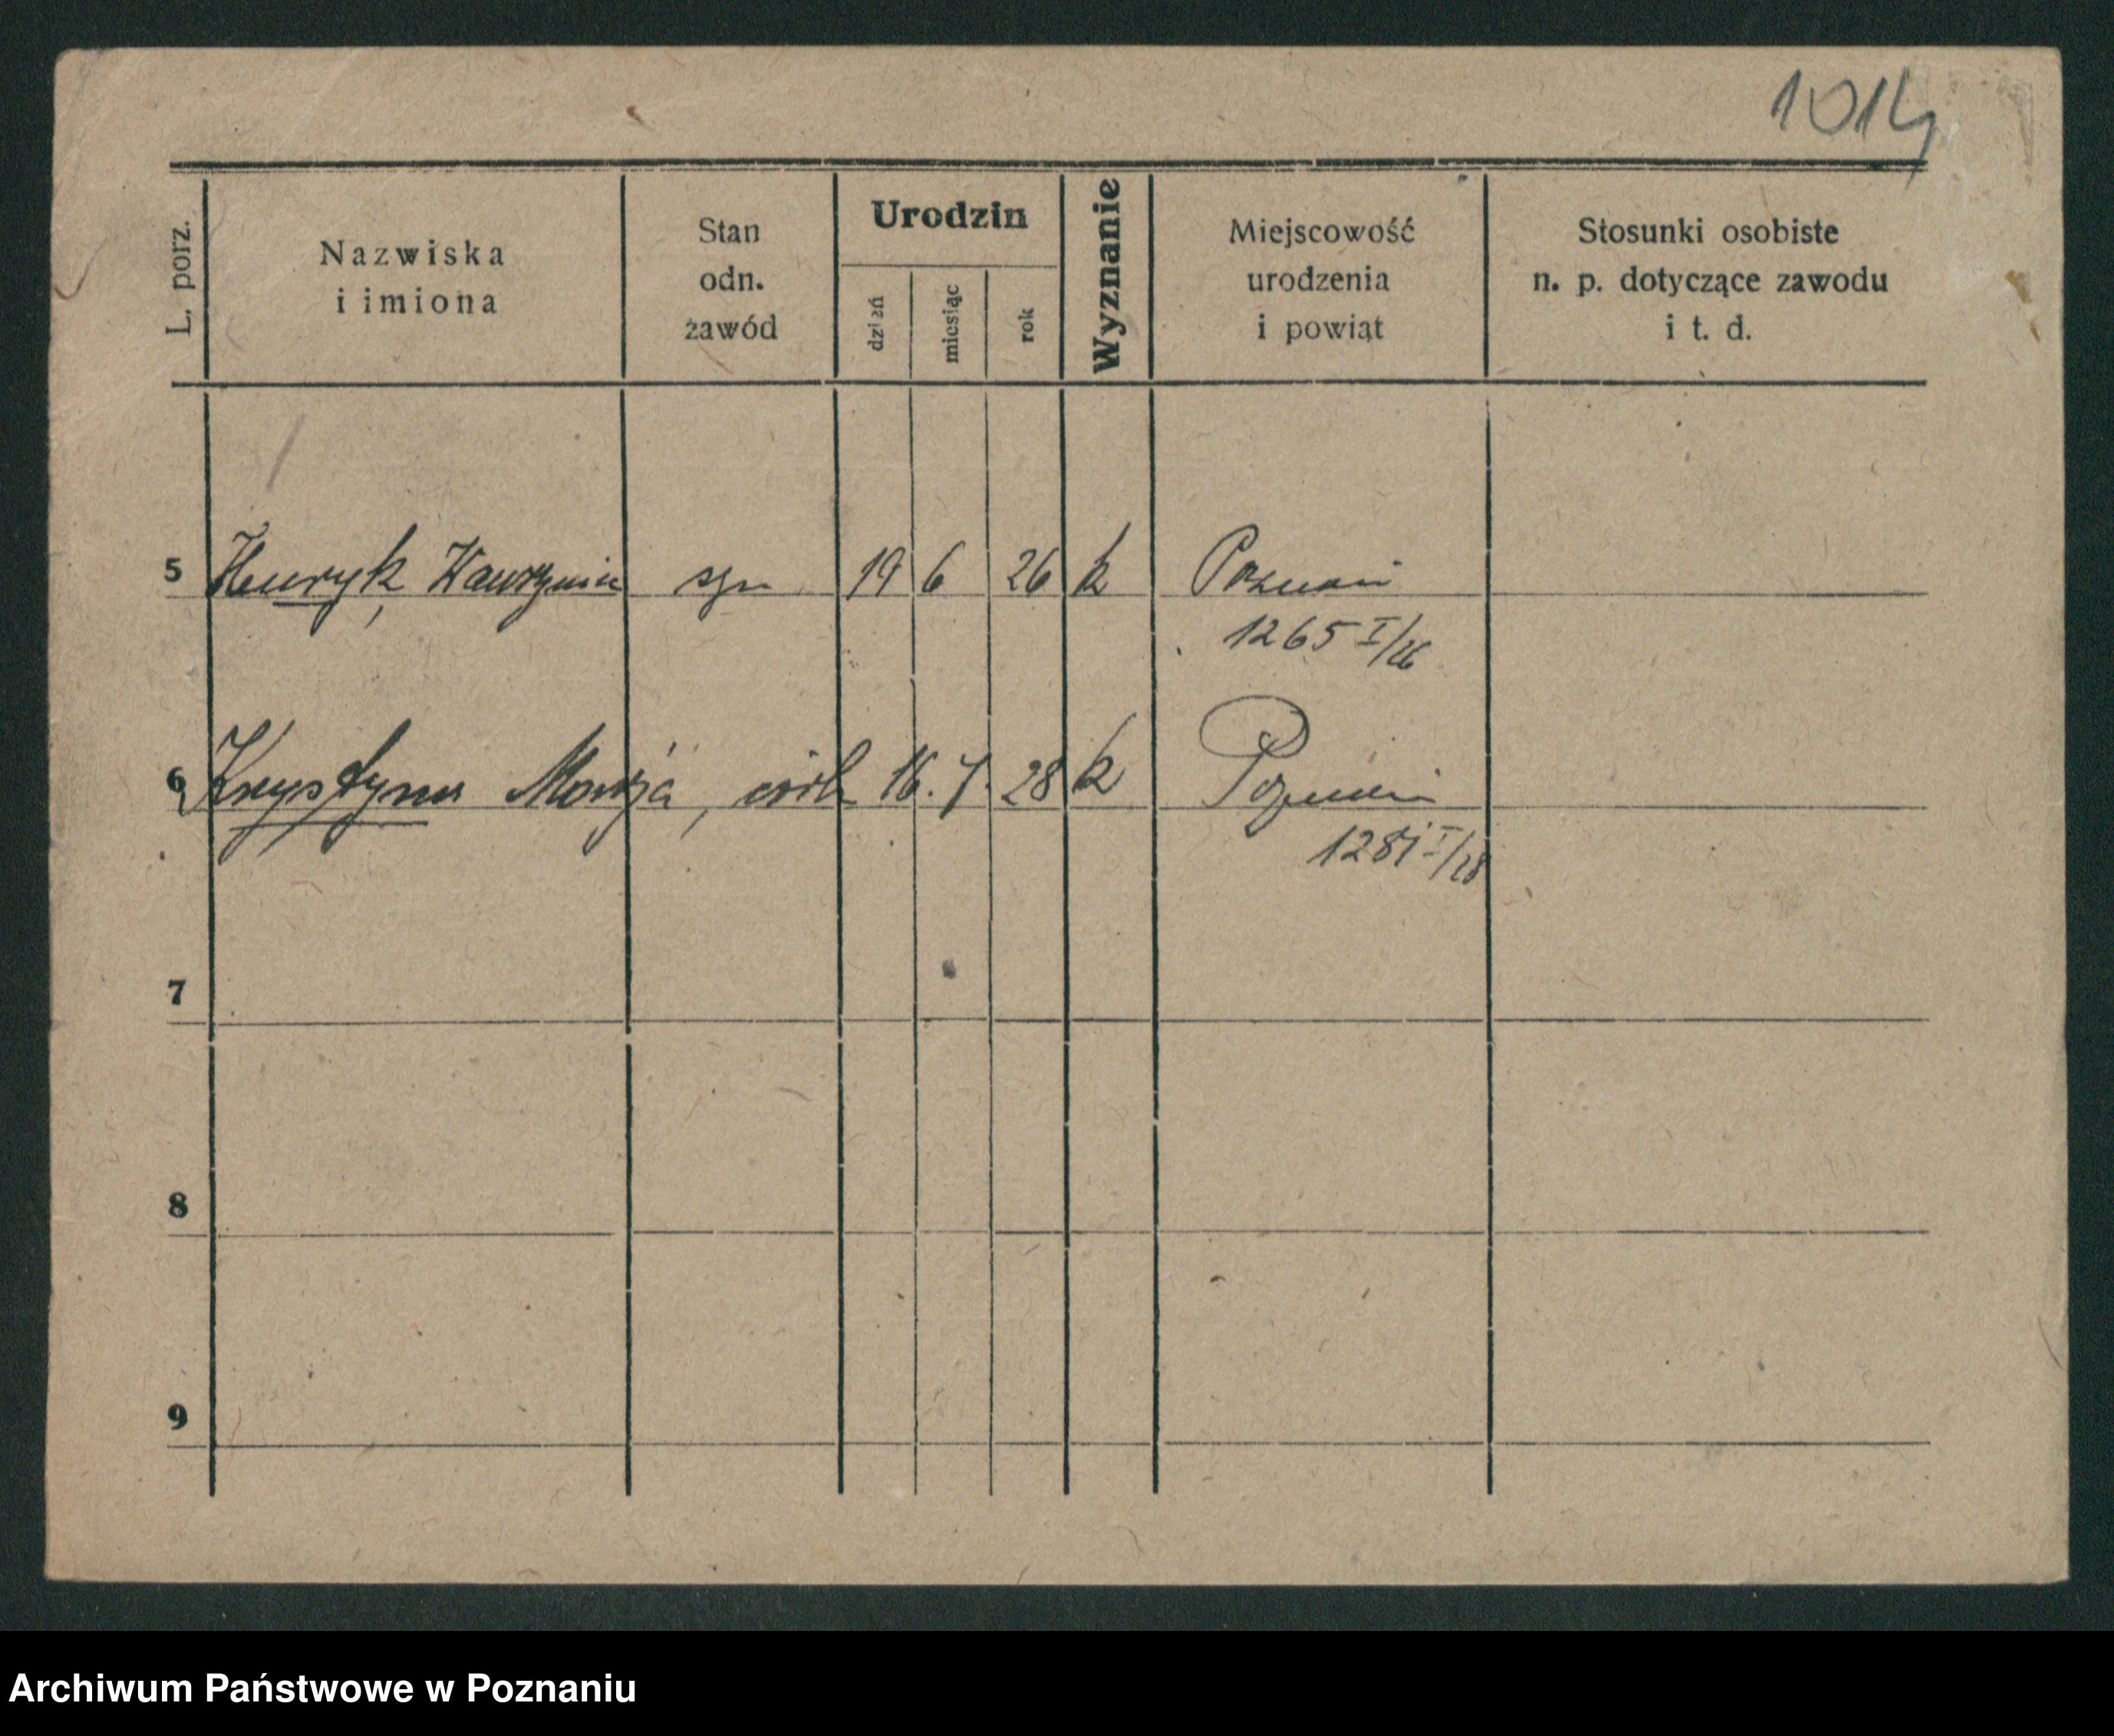 1014
L. porz.
Nazwiska
i imiona
Stan
odn.
zawód
Urodzin
dzień
miesiąc
rok
Wyznanie
Miejscowość
urodzenia
i powiat
Stosunki osobiste
n. p. dotyczące zawodu
i t. d.
5 Henryk Wawrzyniec syn 19 6 26 k Poznań
1265 I/26
6 Krystyna Marja, córk 16. 7. 28 k Poznań
1281 I/28
7
8
9
Archiwum Państwowe w Poznaniu